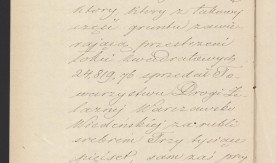 który, który z takowej
część gruntu zawie-
rającą przestrzeni
łokci kwadratowych
24,819,76 sprzedał To-
warzystwu Drogi Że-
laznej Warszawsko
Wiedeńskiej za rubli
srebrem Trzy tysiące
pięćset, sam zaś przy